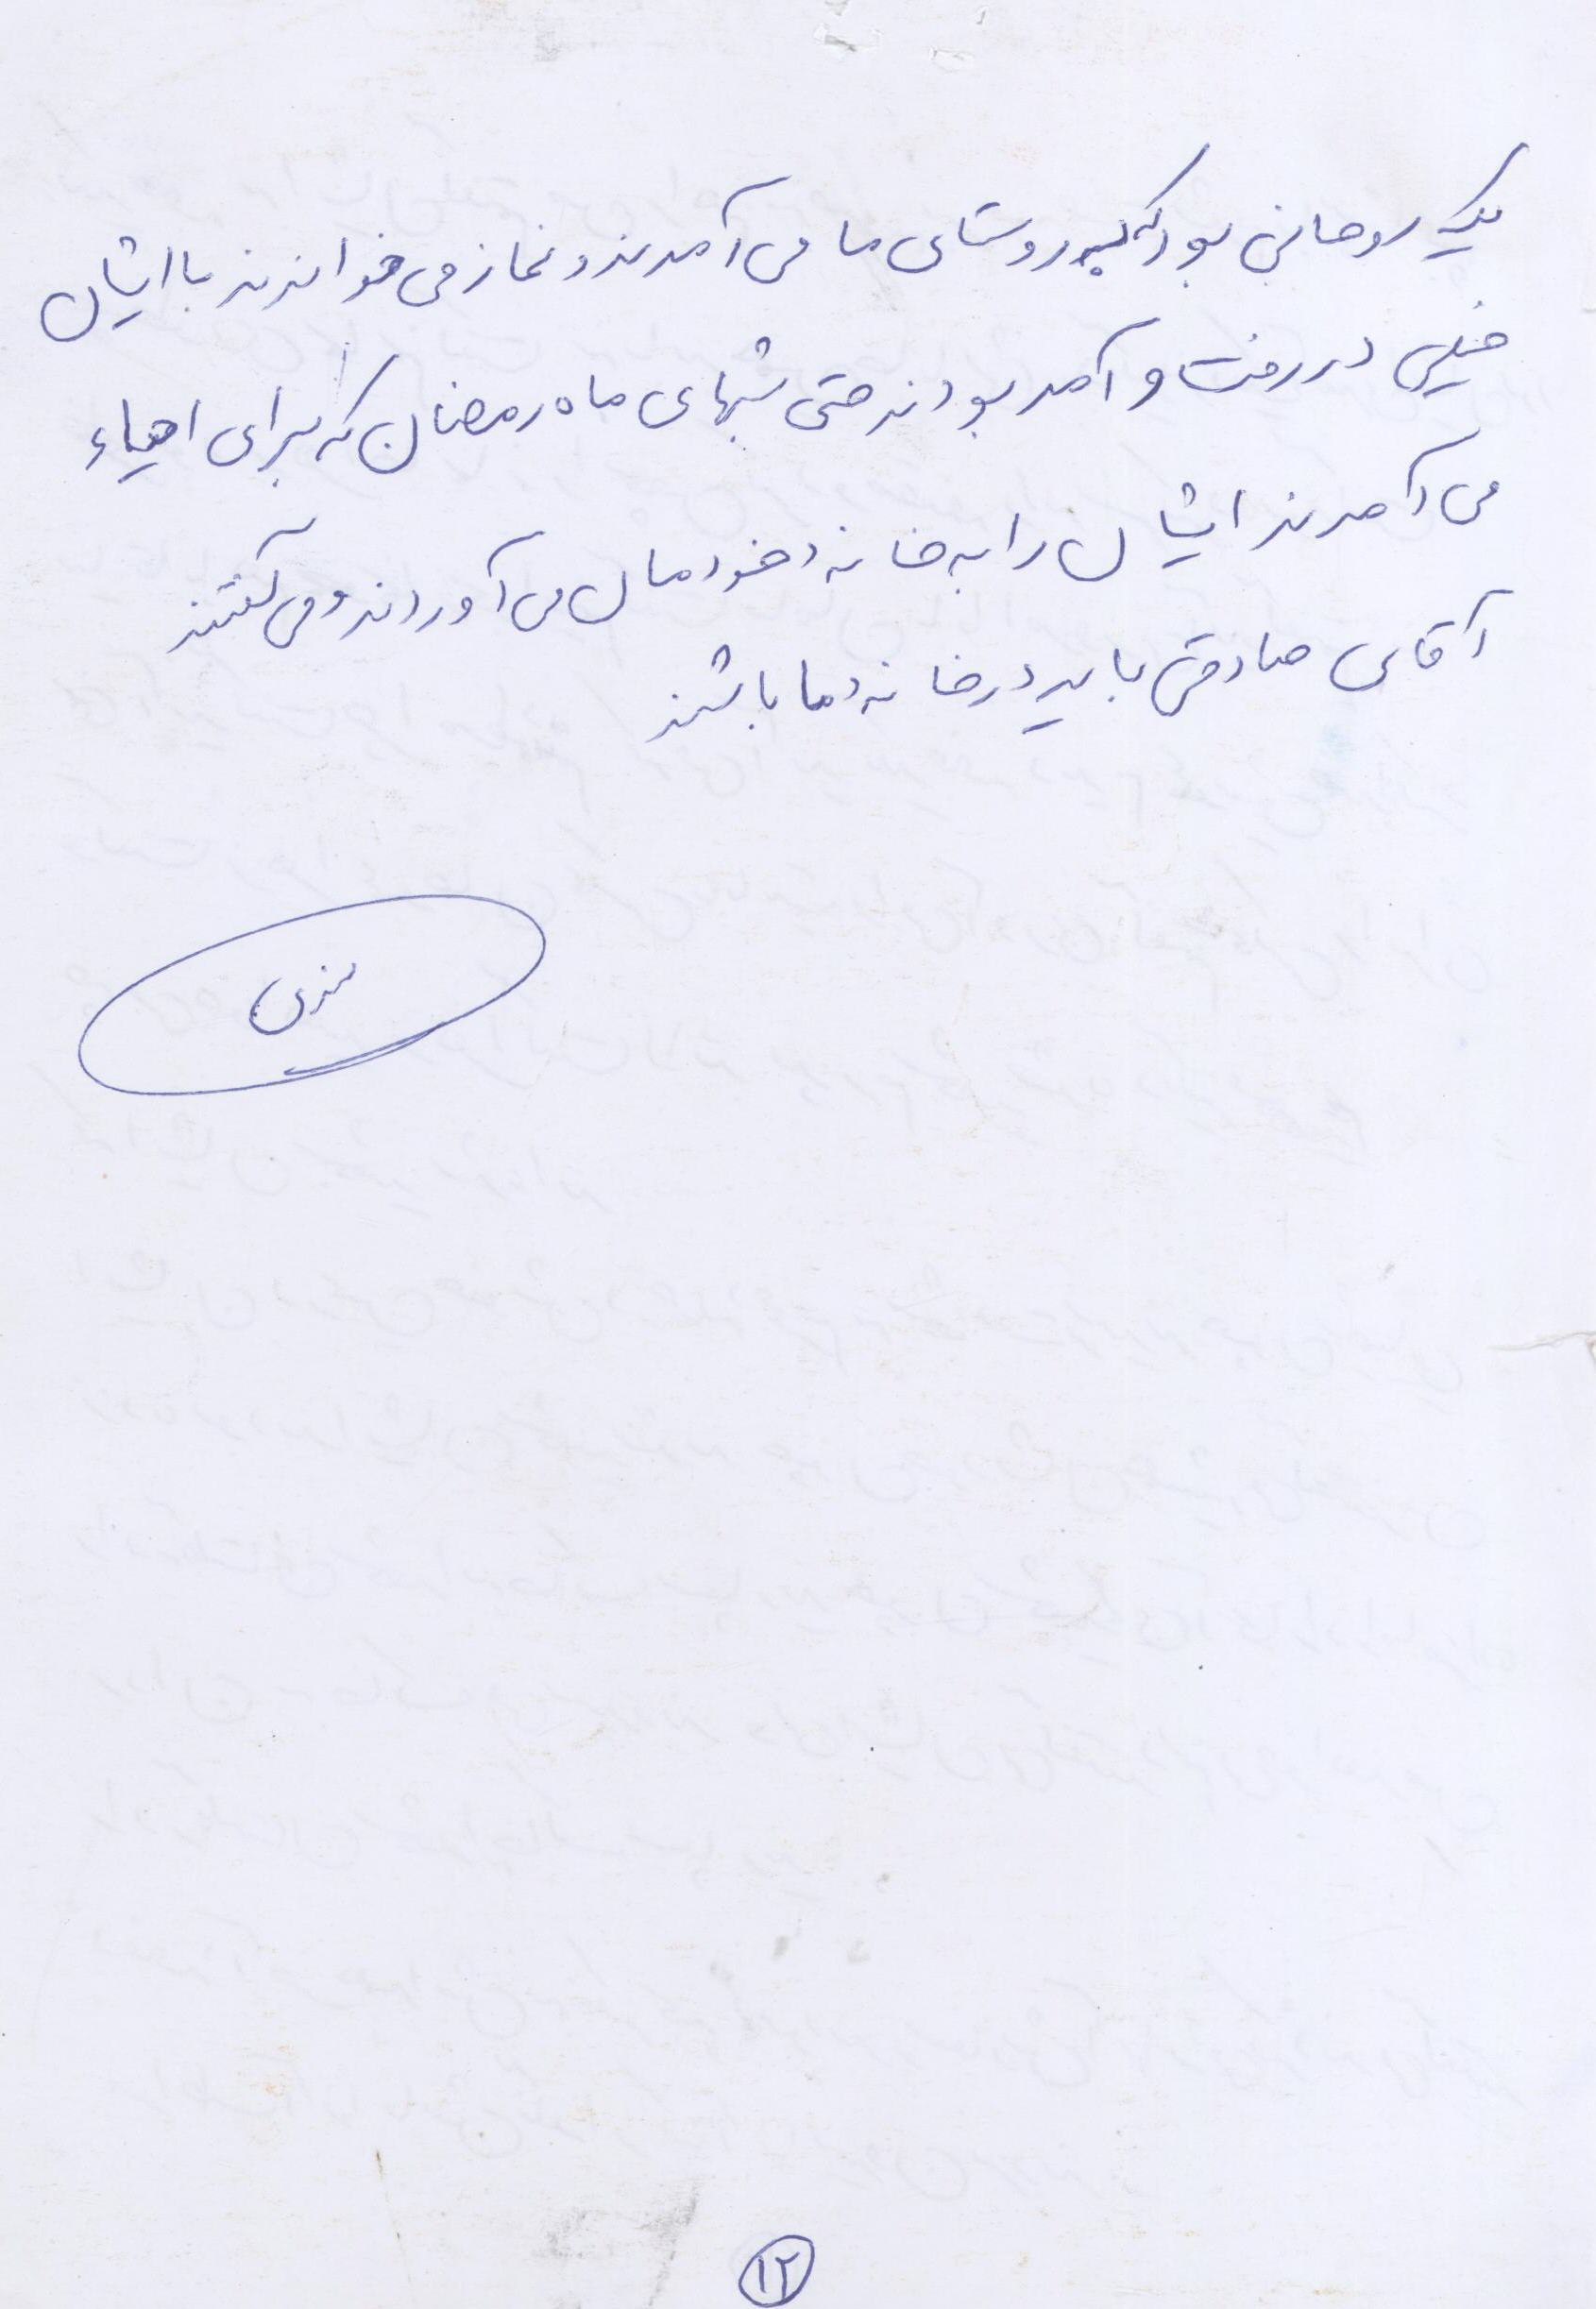 یک روحانی بود که به روستای ما می آمدند و نماز می خواندند با ایشان
خیلی در رفت و آمد بودند حتی شبهای ماه رمضان که برای احیاء
می آمدند ایشان را به خانه خودمان می آوردند و می گفتند
آقای صادقی باید در خانه ما باشند
۱۲